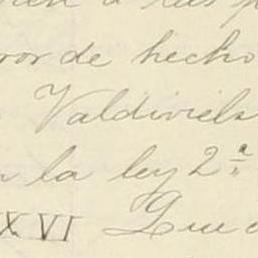 ror de hecho
Valdiviels
la ley 2ª
XXVI Que